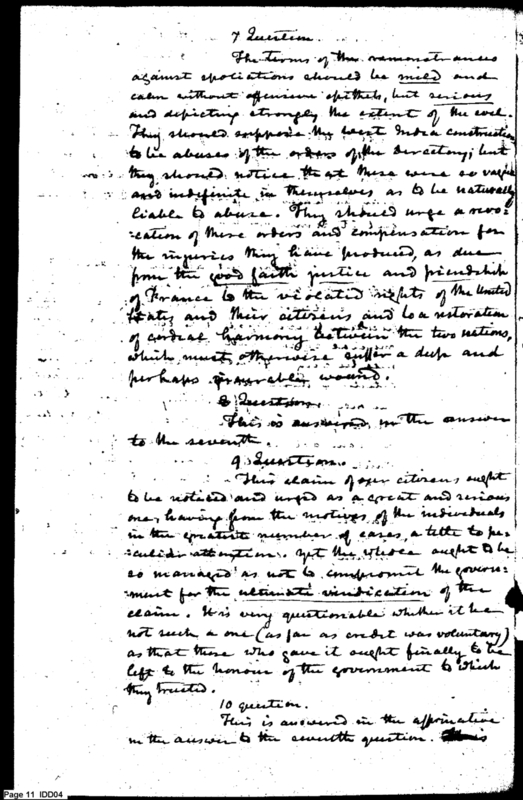 7 Question.
The terms of the remonstrances
against spoliations should be mild and
calm without offensive epithets, but serious
and depicting strongly the extent of the evil.
They should suppose the West India constructions
to be abuses of the orders of the Directory; but
they should notice that these were so vague
and indefinite in themselves as to be naturally
liable to abuse. They should urge a revo-
cation of these orders and compensation for
the injuries they have produced, as due
from the good faith justice and friendship
of France to the violated rights of the United
States and their citizens and to a restoration
of cordial harmony between the two nations,
which must otherwise suffer a deep and
perhaps incurable wound.
8 Question.
This is answered in the answer
to the seventh.
9 Question.
This claim of our citizens ought
to be noticed and urged as a great and serious
one, having from the motives of the individuals
in the greatest number of cases, a title to pe-
culiar attention. Yet the whole ought to be
so managed as not to compromit the govern-
ment for the ultimate vindication of the
claim. It is very questionable whether it be
not such a one (as far as credit was voluntary)
as that those who gave it ought finally to be
left to the honour of the government to which
they trusted.
10 question.
This is answered in the affirmative
in the answer to the seventh question.
Page 11 IDD04